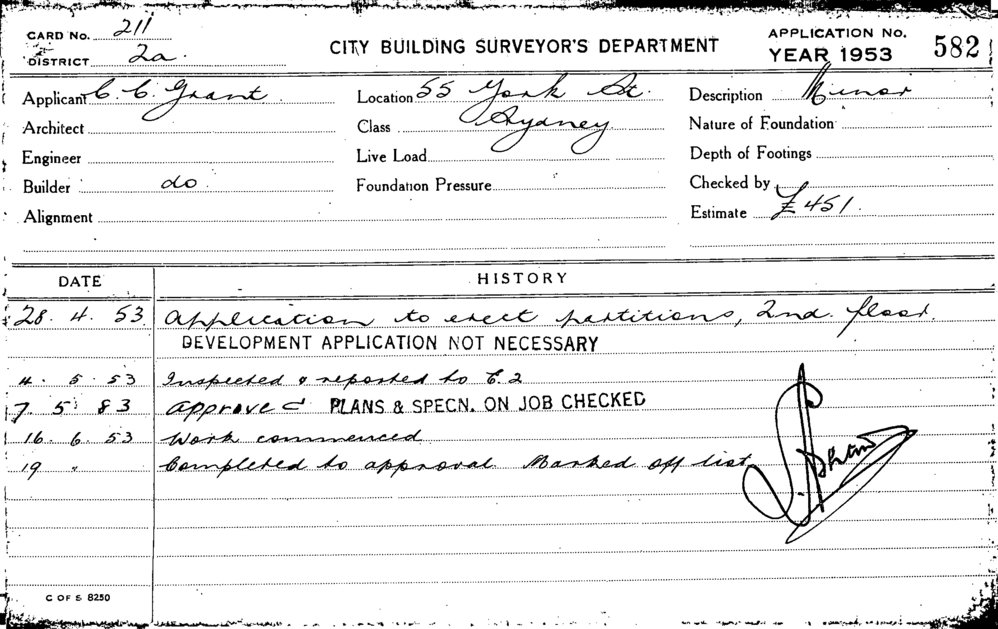 CARD No. 211
DISTRICT 2a.
CITY BUILDING SURVEYOR'S DEPARTMENT
APPLICATION No.
YEAR 1953 582
Applicant C. C. Grant
Location 55 York St.
Description Minor
Architect
Class Sydney
Nature of Foundation
Engineer
Live Load
Depth of Footings
Builder do
Foundation Pressure
Checked by
Alignment
Estimate £451.
DATE HISTORY
28. 4. 53 Application to erect partitions, 2nd. floor.
DEVELOPMENT APPLICATION NOT NECESSARY
4. 5. 53 Inspected & reported to E.2
7. 5. 83 approved PLANS & SPECN. ON JOB CHECKED
16. 6. 53 Work commenced
19 " Completed to approval. Marked off list
C OF S 8250